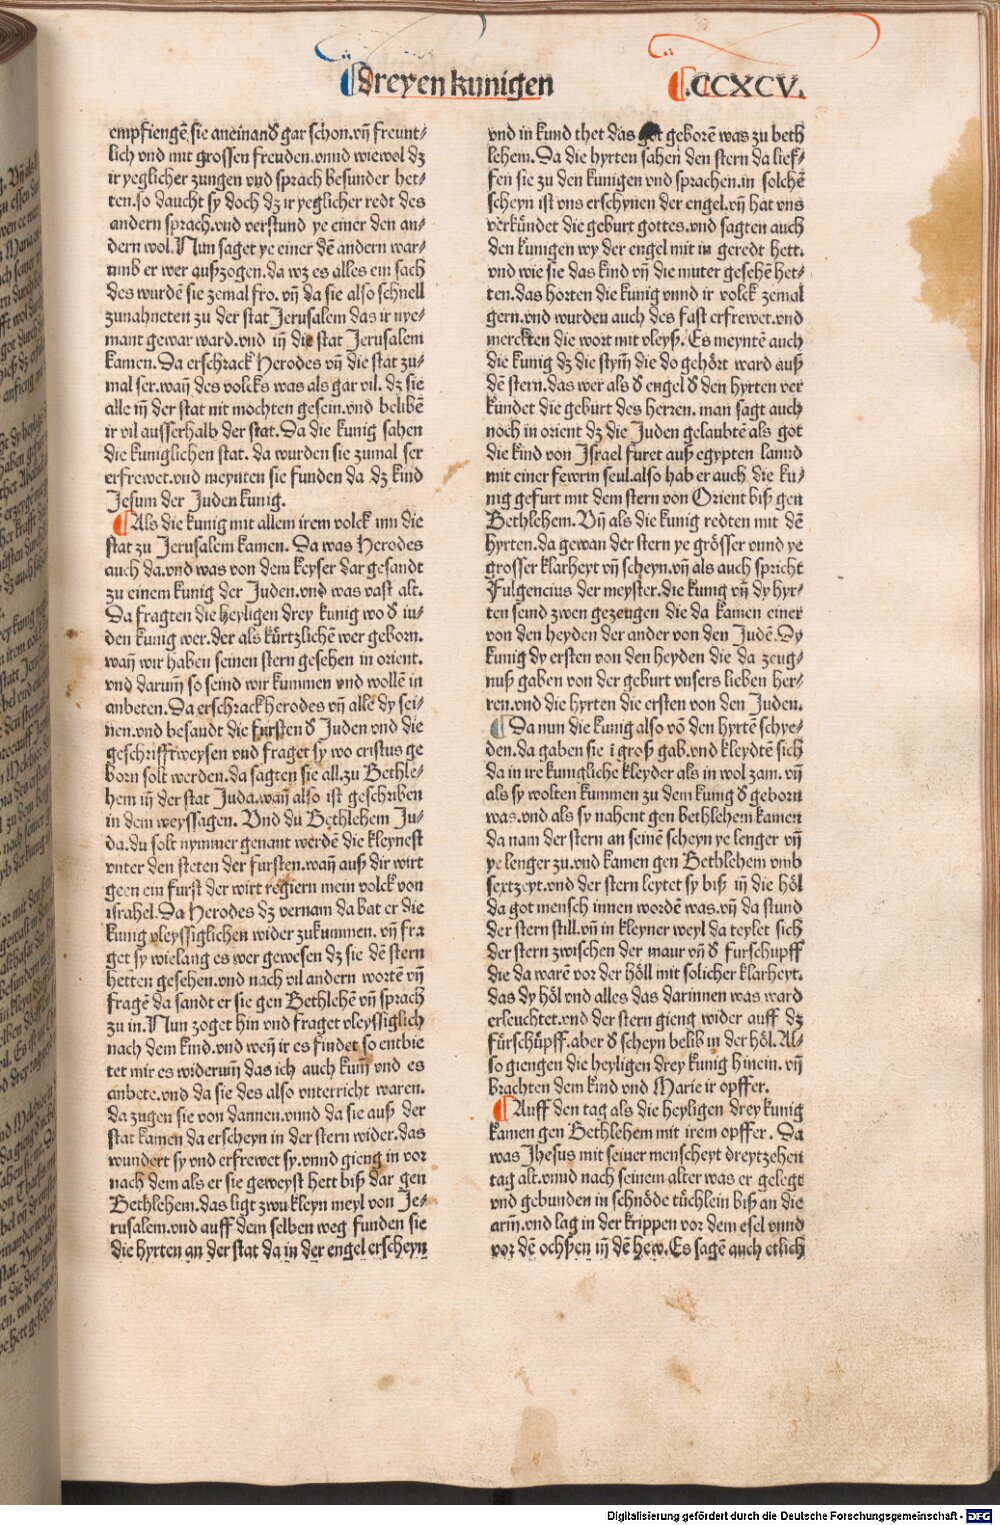 dreyen kunigen
.CCXCV.
empfiengẽ sie aneinanď gar schon.vñ freunt⸗
lich vnd mit grossen freuden.vnnd wiewol dz
ir yeglicher zungen vnd sprach besunder het⸗
ten.so daucht sy doch dz ir yeglicher redt des
andern sprach.vnd verstund ye einer den an⸗
dern wol.Nun saget ye einer dẽ andern war⸗
umb er wer außzogen.da wz es alles ein sach
des wurdẽ sie zemal fro. vñ da sie also schnell
zunahneten zu der stat Jerusalem das ir nye⸗
mant gewar ward.vnd iñ die stat Jerusalem
kamen.Da erschrack Herodes vñ die stat zu⸗
mal ser.wañ des volcks was als gar vil. dz sie
alle iñ der stat nit mochten gesein.vnd belibẽ
ir vil ausserhalb der stat.Da die kunig sahen
die kuniglichen stat. da wurden sie zumal ser
erfrewet.vnd meynten sie funden da dz kind
Jesum der Juden kunig.
Als die kunig mit allem irem volck inn die
stat zu Jerusalem kamen. Da was Herodes
auch da.vnd was von dem keyser dar gesandt
zu einem kunig der Juden.vnd was vast alt.
Da fragten die heyligen drey kunig wo ď iu⸗
den kunig wer.der als kürtzlichẽ wer geborn.
wañ wir haben seinen stern gesehen in orient.
vnd darum̃ so seind wir kummen vnd wollẽ in
anbeten.Da erschrack herodes vñ alle dy sei⸗
nen.vnd besandt die fursten ď Juden vnd die
geschrifftweysen vnd fraget sy wo cristus ge
born solt werden.da sagten sie all.zu Bethle⸗
hem iñ der stat Juda.wañ also ist geschriben
in dem weyssagen. Vnd du Bethlehem Ju⸗
da.du solt nymmer genant werdẽ die kleynest
vnter den steten der fursten.wañ auß dir wirt
geen ein furst der wirt regiern mein volck von
israhel.Da Herodes dz vernam da bat er die
kunig vleyssiglichen wider zukummen. vñ fra
get sy wielang es wer gewesen dz sie dẽ stern
hetten gesehen.vnd nach vil andern wortẽ vñ
fragẽ da sandt er sie gen Bethlehẽ vñ sprach
zu in.Nun zoget hin vnd fraget vleyssiglich
nach dem kind.vnd weñ ir es findet so entbie
tet mir es widerum̃ das ich auch kum̃ vnd es
anbete.vnd da sie des also vnterricht waren.
da zugen sie von dannen.vnnd da sie auß der
stat kamen da erscheyn in der stern wider.das
wundert sy vnd erfrewet sy.vnnd gieng in vor
nach dem als er sie geweyst hett biß dar gen
Bethlehem.das ligt zwu kleyn meyl von Je⸗
rusalem.vnd auff dem selben weg funden sie
die hyrten an der stat da in der engel erscheyn
vnd in kund thet das got geborẽ was zu beth
lehem.Da die hyrten sahen den stern da lief⸗
fen sie zu den kunigen vnd sprachen.in solchẽ
scheyn ist vns erschynen der engel.vñ hat vns
verkündet die geburt gottes.vnd sagten auch
den kunigen wy der engel mit in geredt hett.
vnd wie sie das kind vñ die muter gesehẽ het⸗
ten.das horten die kunig vnnd ir volck zemal
gern.vnd wurden auch des fast erfrewet.vnd
merckten die wort mit vleyß. Es meyntẽ auch
die kunig dz die stym̃ die do gehört ward auß
dẽ stern.das wer als ď engel ď den hyrten ver
kundet die geburt des herren. man sagt auch
noch in orient dz die Juden gelaubtẽ als got
die kind von Israel furet auß egypten lannd
mit einer fewrin seul.also hab er auch die ku⸗
nig gefurt mit dem stern von Orient biß gen
Bethlehem. Vñ als die kunig redten mit dẽ
hyrten.da gewan der stern ye grösser vnnd ye
grosser klarheyt vñ scheyn.vñ als auch spricht
Fulgencius der meyster.die kunig vñ dy hyr⸗
ten seind zwen gezeugen die da kamen einer
von den heyden der ander von den Judẽ.Dy
kunig dy ersten von den heyden die da zeug⸗
nuß gaben von der geburt vnsers lieben her⸗
ren.vnd die hyrten die ersten von den Juden.
Da nun die kunig also võ den hyrtẽ schye⸗
den.da gaben sie ĩ groß gab.vnd kleydtẽ sich
da in ire kunigliche kleyder als in wol zam. vñ
als sy wolten kummen zu dem kunig ď geborn
was.vnd als sy nahent gen bethlehem kamen
da nam der stern an seinẽ scheyn ye lenger vñ
ye lenger zu.vnd kamen gen Bethlehem vmb
sextzeyt.vnd der stern leytet sy biß iñ die höl
da got mensch innen wordẽ was.vñ da stund
der stern still.vñ in kleyner weyl da teylet sich
der stern zwischen der maur vñ ď furschupff
die da warẽ vor der höll mit solicher klarheyt.
das dy höl vnd alles das darinnen was ward
erleuchtet.vnd der stern gieng wider auff dz
fürschüpff.aber ď scheyn belib in der höl. Al⸗
so giengen die heyligen drey kunig hinein. vñ
brachten dem kind vnd Marie ir opffer.
Auff den tag als die heyligen drey kunig
kamen gen Bethlehem mit irem opffer. Da
was Jhesus mit seiner menscheyt dreytzehen
tag alt.vnnd nach seinem alter was er gelegt
vnd gebunden in schnöde tüchlein biß an die
arm̃.vnd lag in der krippen vor dem esel vnnd
vor dẽ ochßen iñ dẽ hew.Es sagẽ auch etlich
Digitalisierung gefördert durch die Deutsche Forschungsgemeinschaft - DFG